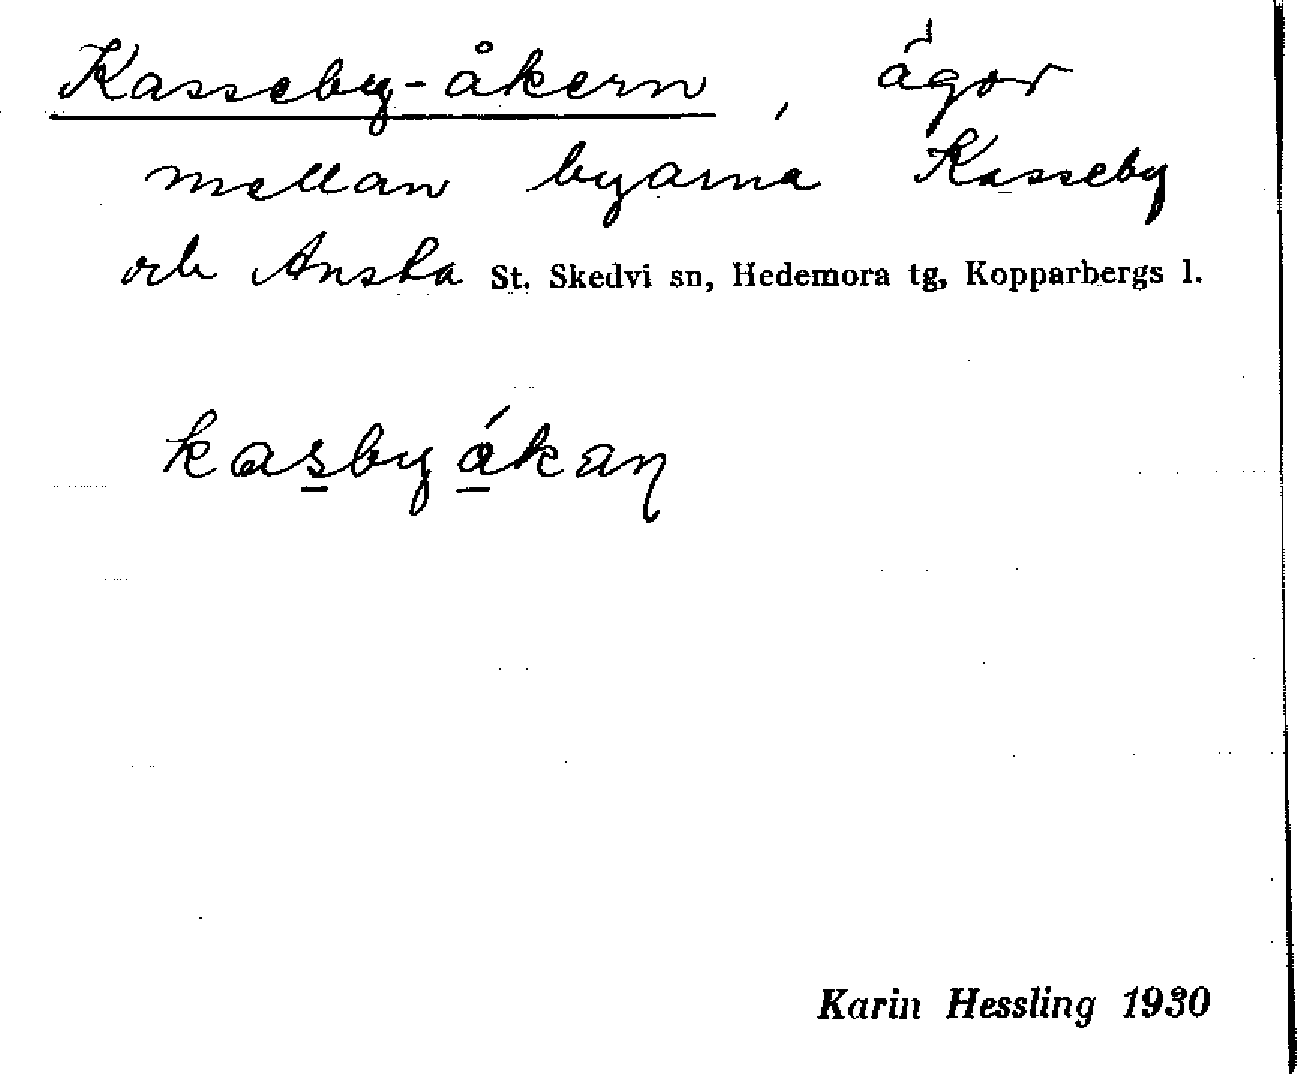 Kasseby-åkern, ägor
mellan byarna Kasseby
och Ansta St. Skedvi sn, Hedemora tg, Kopparbergs l.
kasbyákaṇ
Karin Hessling 1930